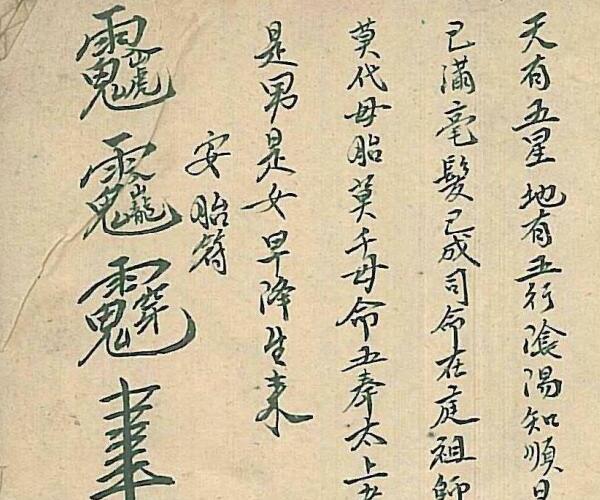 天有五星地有五行陰陽知順日
已滿毫髮已成司命在庭祖師
莫代母胎莫千母命五奉太上
是男是女早降生來
安胎符